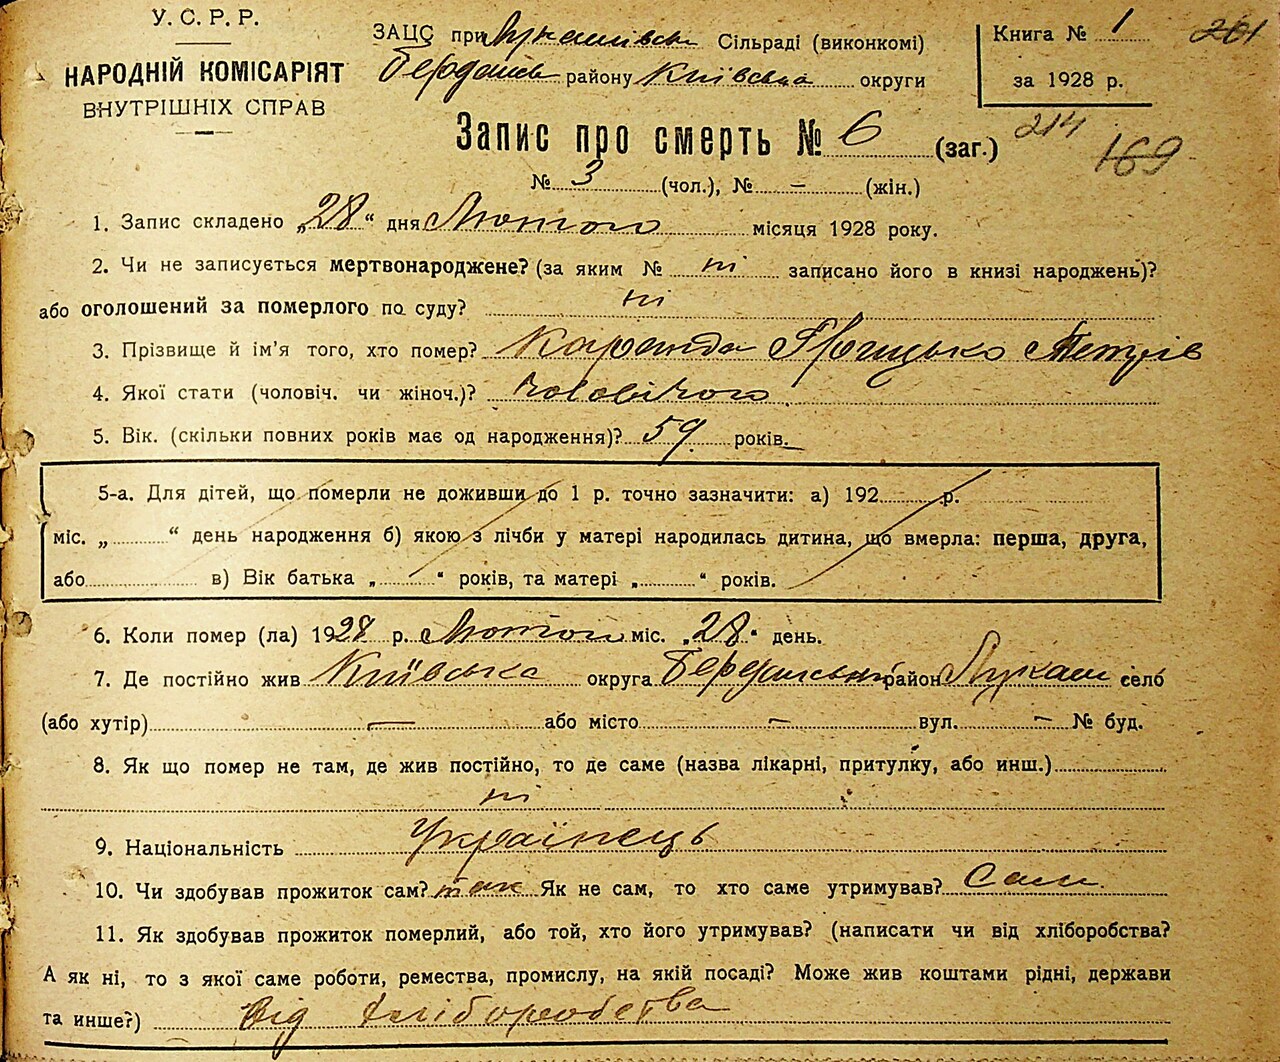 У. С. Р. Р.
НАРОДНІЙ КОМІСАРІЯТ
ВНУТРІШНІХ СПРАВ
ЗАЦС при Лукашівськ Сільраді (виконкомі)
району Київська округи
Книга № 1
за 1928 р.
201
Запис про смерть № 6 (заг.)
214
169
№ 3 (чол.), № – (жін.)
1. Запис складено „28“ дня Лютого місяця 1928 року.
2. Чи не записується мертвонароджене? (за яким № ні записано його в книзі народжень)?
або оголошений за померлого по суду? ні
3. Прізвище й ім'я того, хто помер? Каранда Грицько Петрів
4. Якої стати (чоловіч. чи жіноч.)? чоловічого
5. Вік. (скільки повних років має од народження)? 59 років.
5-а. Для дітей, що померли не доживши до 1 р. точно зазначити: а) 192 р.
міс. „ “ день народження б) якою з лічби у матері народилась дитина, що вмерла: перша, друга,
або в) Вік батька „ “ років, та матері „ “ років.
6. Коли помер (ла) 1928 р. Лютого міс. „28“ день.
7. Де постійно жив Київська округа район Лукаші село
(або хутір) — або місто – вул. – № буд.
8. Як що помер не там, де жив постійно, то де саме (назва лікарні, притулку, або инш.)
ні
9. Національність Українець
10. Чи здобував прожиток сам? так Як не сам, то хто саме утримував? Сам
11. Як здобував прожиток померлий, або той, хто його утримував? (написати чи від хліборобства?
А як ні, то з якої саме роботи, ремества, промислу, на якій посаді? Може жив коштами рідні, держави
та инше?) Від хліборобства